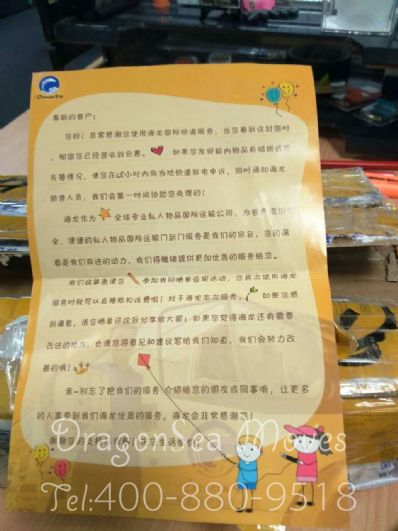 Dragon Sea
尊敬的客户：
您好！非常感谢您使用海龙国际快递服务，当您看到这封信时
，相信您已经签收到包裹。如果您发现箱内物品有破损或丢
失等情况，请您在48小时内向当地快递致电申诉，同时通知海龙
销售人员，我们会第一时间协助您处理的！
海龙作为 全球专业私人物品国际运输公司，为客户提供安
全、便捷的私人物品国际运输门到门服务是我们的宗旨，您的满
意是我们前进的动力，我们将继续提供更加优质的服务给您。
我们诚挚邀请您 参加我司晒单返现活动，您再次使用海龙
服务时就可以直接抵扣运费啦！对于海龙本次服务，如果您感
到满意，请您晒单评论后分享给大家；如果您觉得海龙还有需要
改进的地方，也请您将意见和建议写给我们知道，我们会努力改
善的哦！
亲~别忘了把我们的服务介绍给您的朋友或同事哦，让更多
的人享受到我们海龙优质的服务，海龙会非常感谢您！
谢谢您的支持 祝您生活愉快！
DragonSea Movies
Tel:400-880-9518